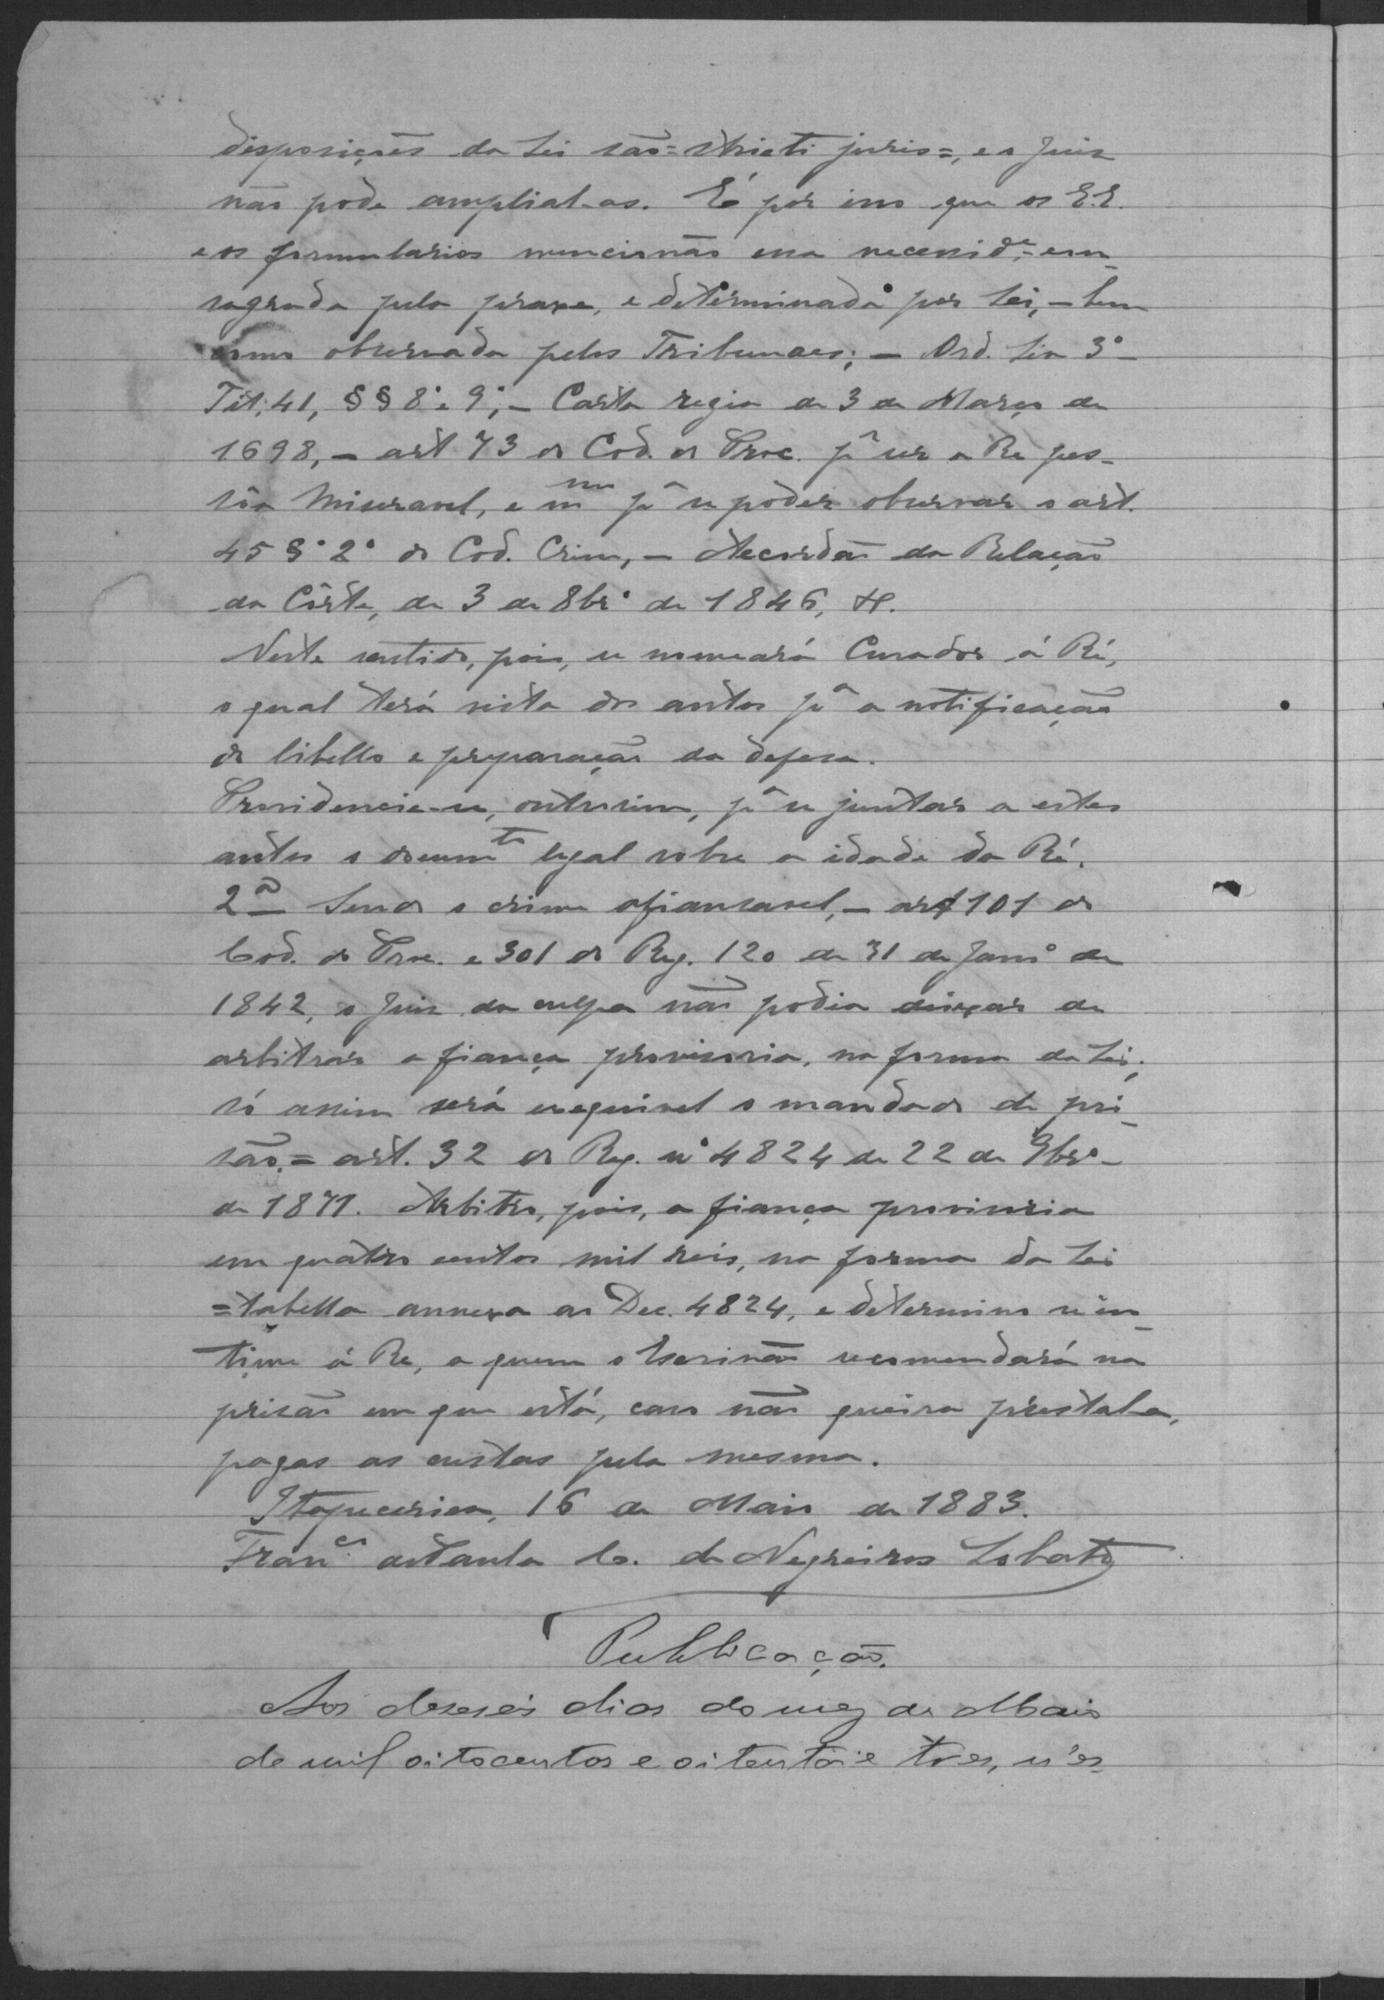 disposições da Lei são = stricti juris =, e o Juiz
não pode amplial-as. É por isso que os E.E.
e os formularios mencionão essa necessid.e = con
sagrada pela praxe, e determinada por Lei, — bem
como observada pelos Tribunaes; — Ord. Liv 3º —
Tit: 41, §§ 8º e 9º; — Carta regia de 3 de Março de
1698, — art 73 do Cod. do Proc. pª ser a Ré pes-
sôa Miseravel, e pª se poder observar o art.
45 §º 2º do Cod. Crim, — Accordão da Relação
da Côrte, de 3 de 8brº de 1846, &.
Neste sentido, pois, se nomeará Curador á Ré,
o qual terá vista dos autos pª a notificação
do libello e preparação da defesa.
Providencie-se, outrosim, pª se juntar a estes
autos o documto legal sobre a idade da Ré.
2ª — Sendo o crime afiansavel, — art 101 do
Cod. do Proc. e 301 do Reg. 120 de 31 de Janº de
1842, o Juiz da culpa não podia deixar de
arbitrar a fiança provisoria, na forma da Lei;
só assim será exequivel o mandado de pri-
são. = art. 32 do Reg. nº 4824 de 22 de 9brº —
de 1871. Arbitro, pois, a fiança provisoria
em quatro centos mil reis, na forma da Lei
= tabella annexa ao Dec. 4824, e determino se in-
time á Ré, a quem o Escrivão recomendará na
prisão em que está, caso não queira prestal-a,
pagas as custas pela mesma.
Itapecerica, 16 de Maio de 1883.
Franco de Paula C. de Negreiros Lobato
Publicação.
Aos deseseis dias do mez de Maio
de mil oitocentos e oitenta e tres, n'es-